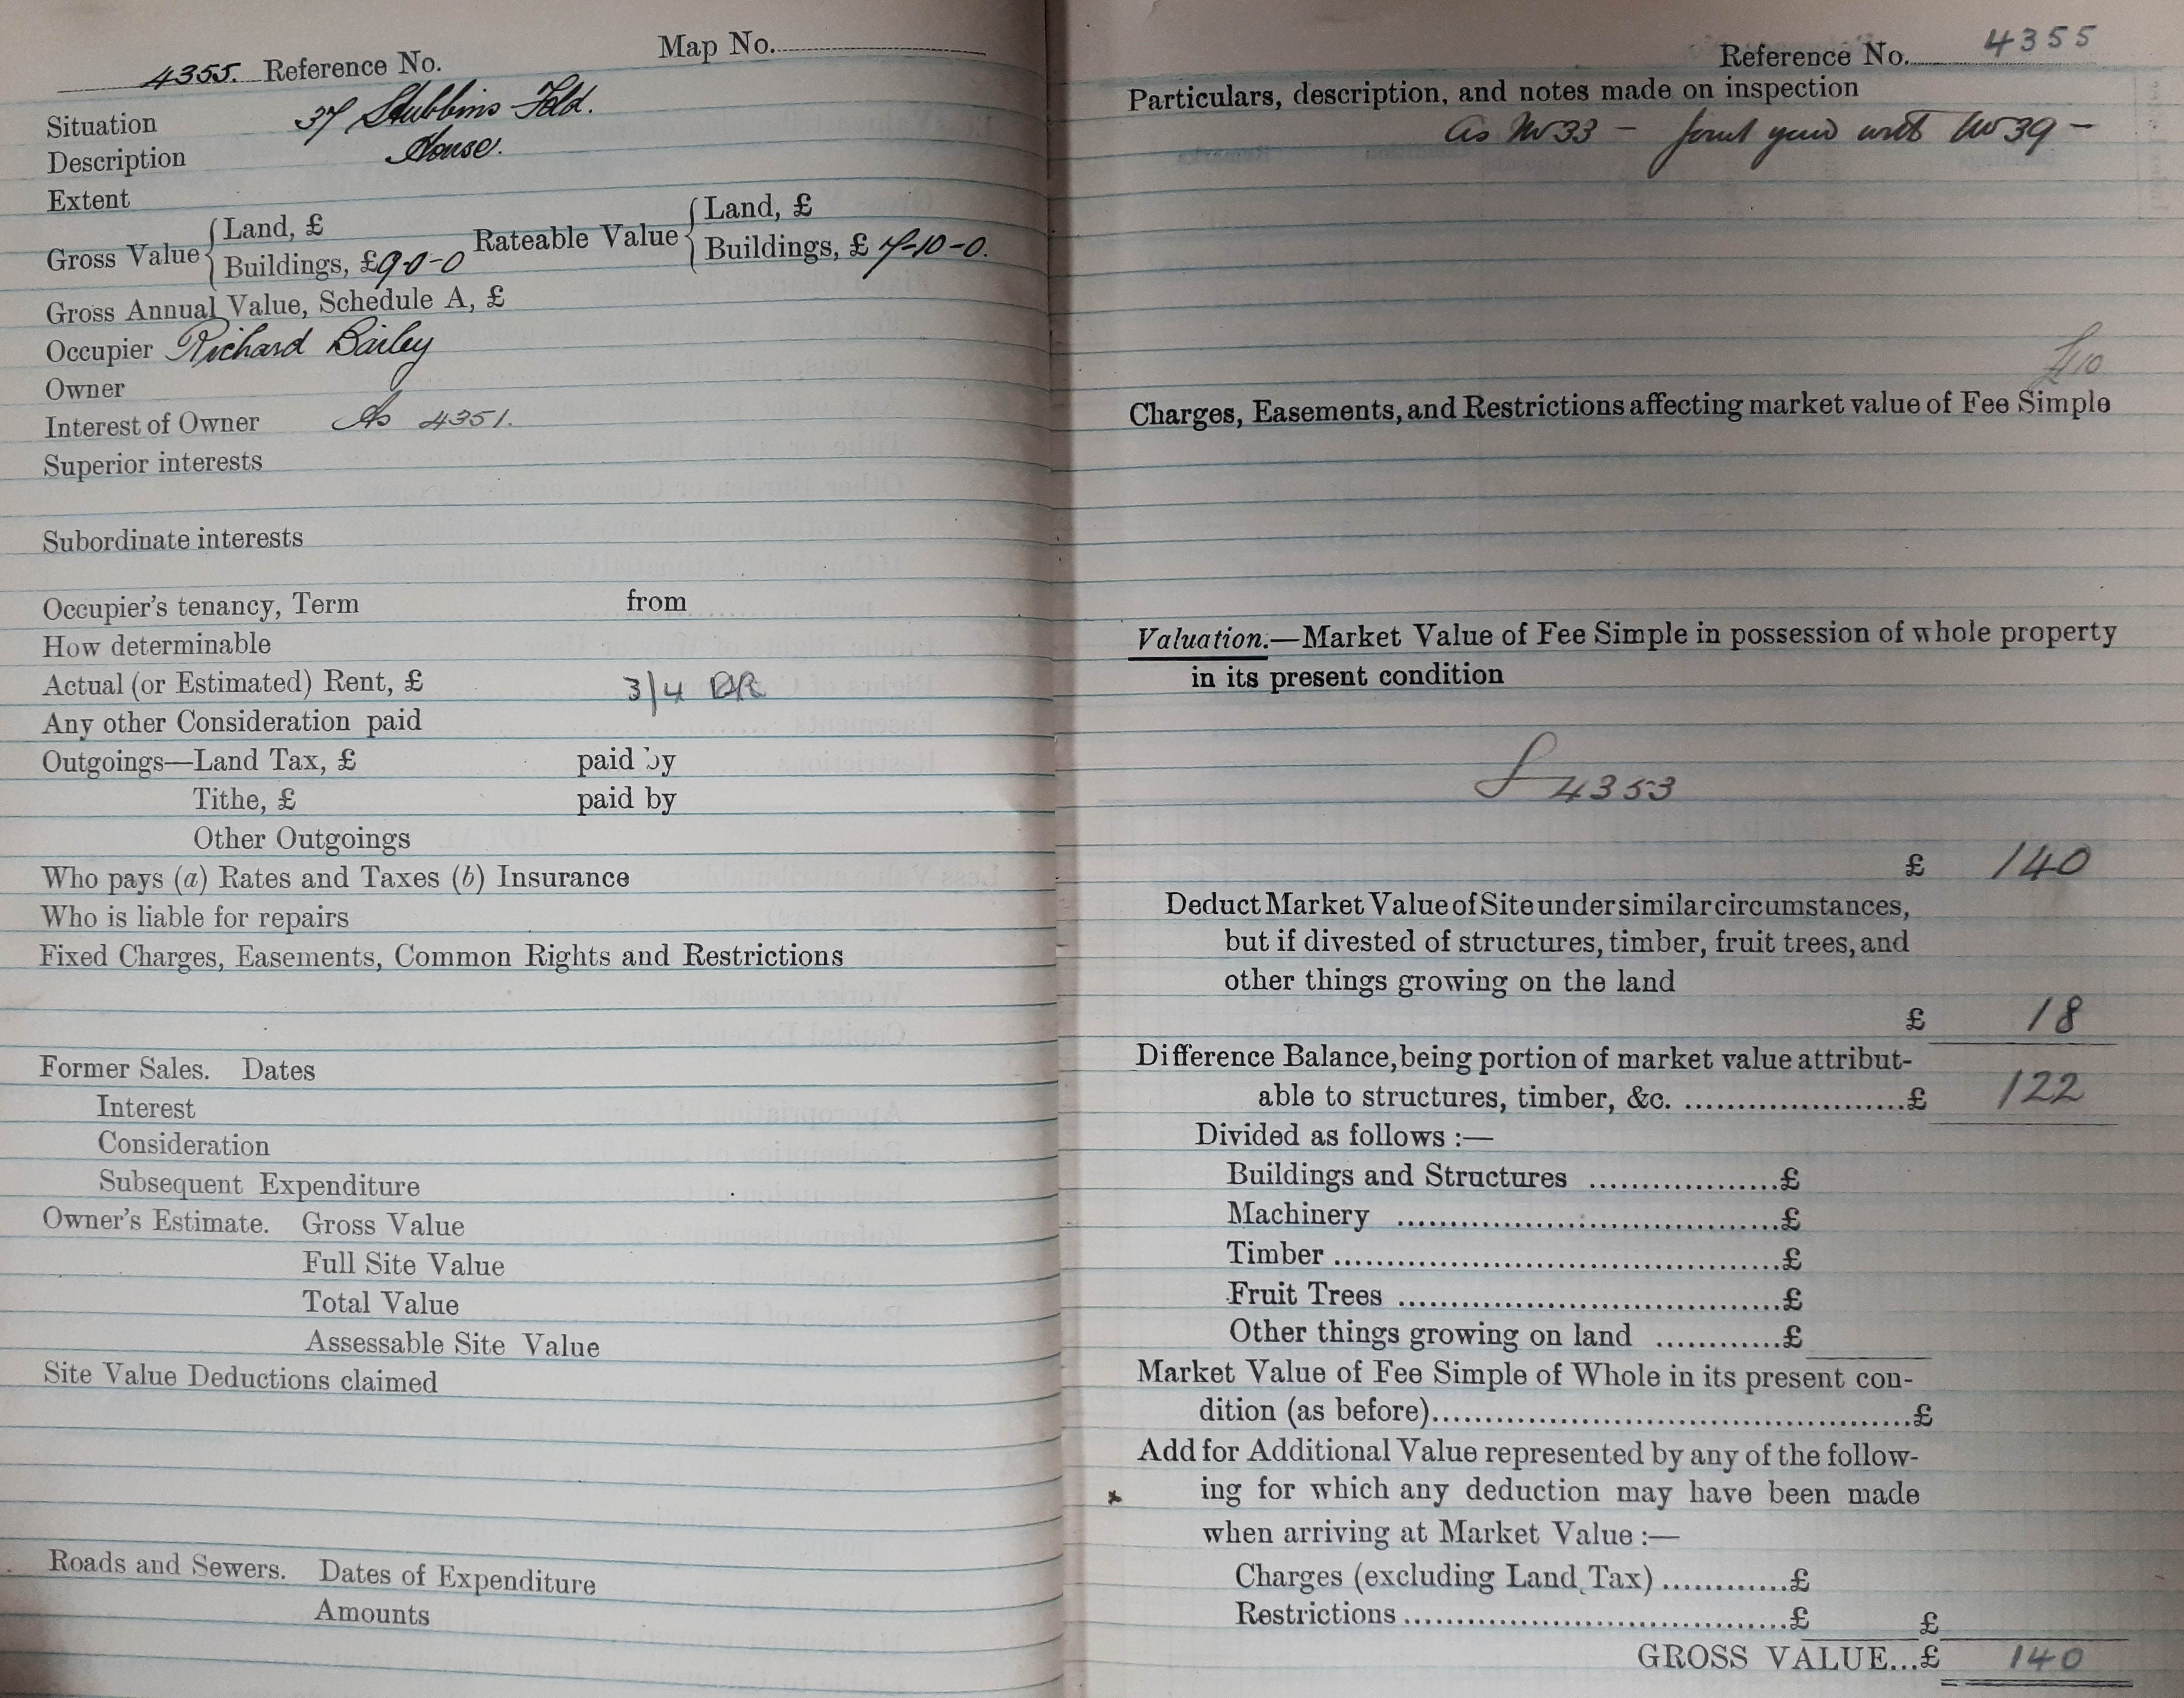 4355. Reference No. Map No.
Situation 37 Stubbins Fold.
Description House.
Extent
Gross Value { Land, £
Buildings, £9-0-0
Rateable Value { Land, £
Buildings, £ 7-10-0.
Gross Annual Value, Schedule A, £
Occupier Richard Bailey
Owner
Interest of Owner As 4351.
Superior interests
Subordinate interests
Occupier's tenancy, Term from
How determinable
Actual (or Estimated) Rent, £ 3/4
Any other Consideration paid
Outgoings—Land Tax, £ paid by
Tithe, £ paid by
Other Outgoings
Who pays (a) Rates and Taxes (b) Insurance
Who is liable for repairs
Fixed Charges, Easements, Common Rights and Restrictions
Former Sales. Dates
Interest
Consideration
Subsequent Expenditure
Owner's Estimate. Gross Value
Full Site Value
Total Value
Assessable Site Value
Site Value Deductions claimed
Roads and Sewers. Dates of Expenditure
Amounts
Reference No. 4355
Particulars, description, and notes made on inspection
As No 33 — Joint yard with No 39 —
Charges, Easements, and Restrictions affecting market value of Fee Simple
Valuation.—Market Value of Fee Simple in possession of whole property
in its present condition
4353
£ 140
Deduct Market Value of Site under similar circumstances,
but if divested of structures, timber, fruit trees, and
other things growing on the land
£ 18
Difference Balance, being portion of market value attribut-
able to structures, timber, &c. ......................£ 122
Divided as follows :—
Buildings and Structures ..................£
Machinery ....................................£
Timber ..........................................£
Fruit Trees ....................................£
Other things growing on land ............£
Market Value of Fee Simple of Whole in its present con-
dition (as before)..............................................£
Add for Additional Value represented by any of the follow-
ing for which any deduction may have been made
when arriving at Market Value :—
Charges (excluding Land Tax) ............£
Restrictions ....................................£ £
GROSS VALUE...£ 140